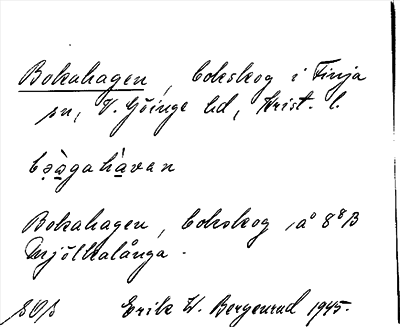 Bokahagen, bokskog i Finja
sn, V. Göinge hd, Krist. l.
bo̤àgahàvan
Bokahagen, bokskog, å 8⁸B
Mjölkalånga.
SOS Erik W. Bergenrud 1945.